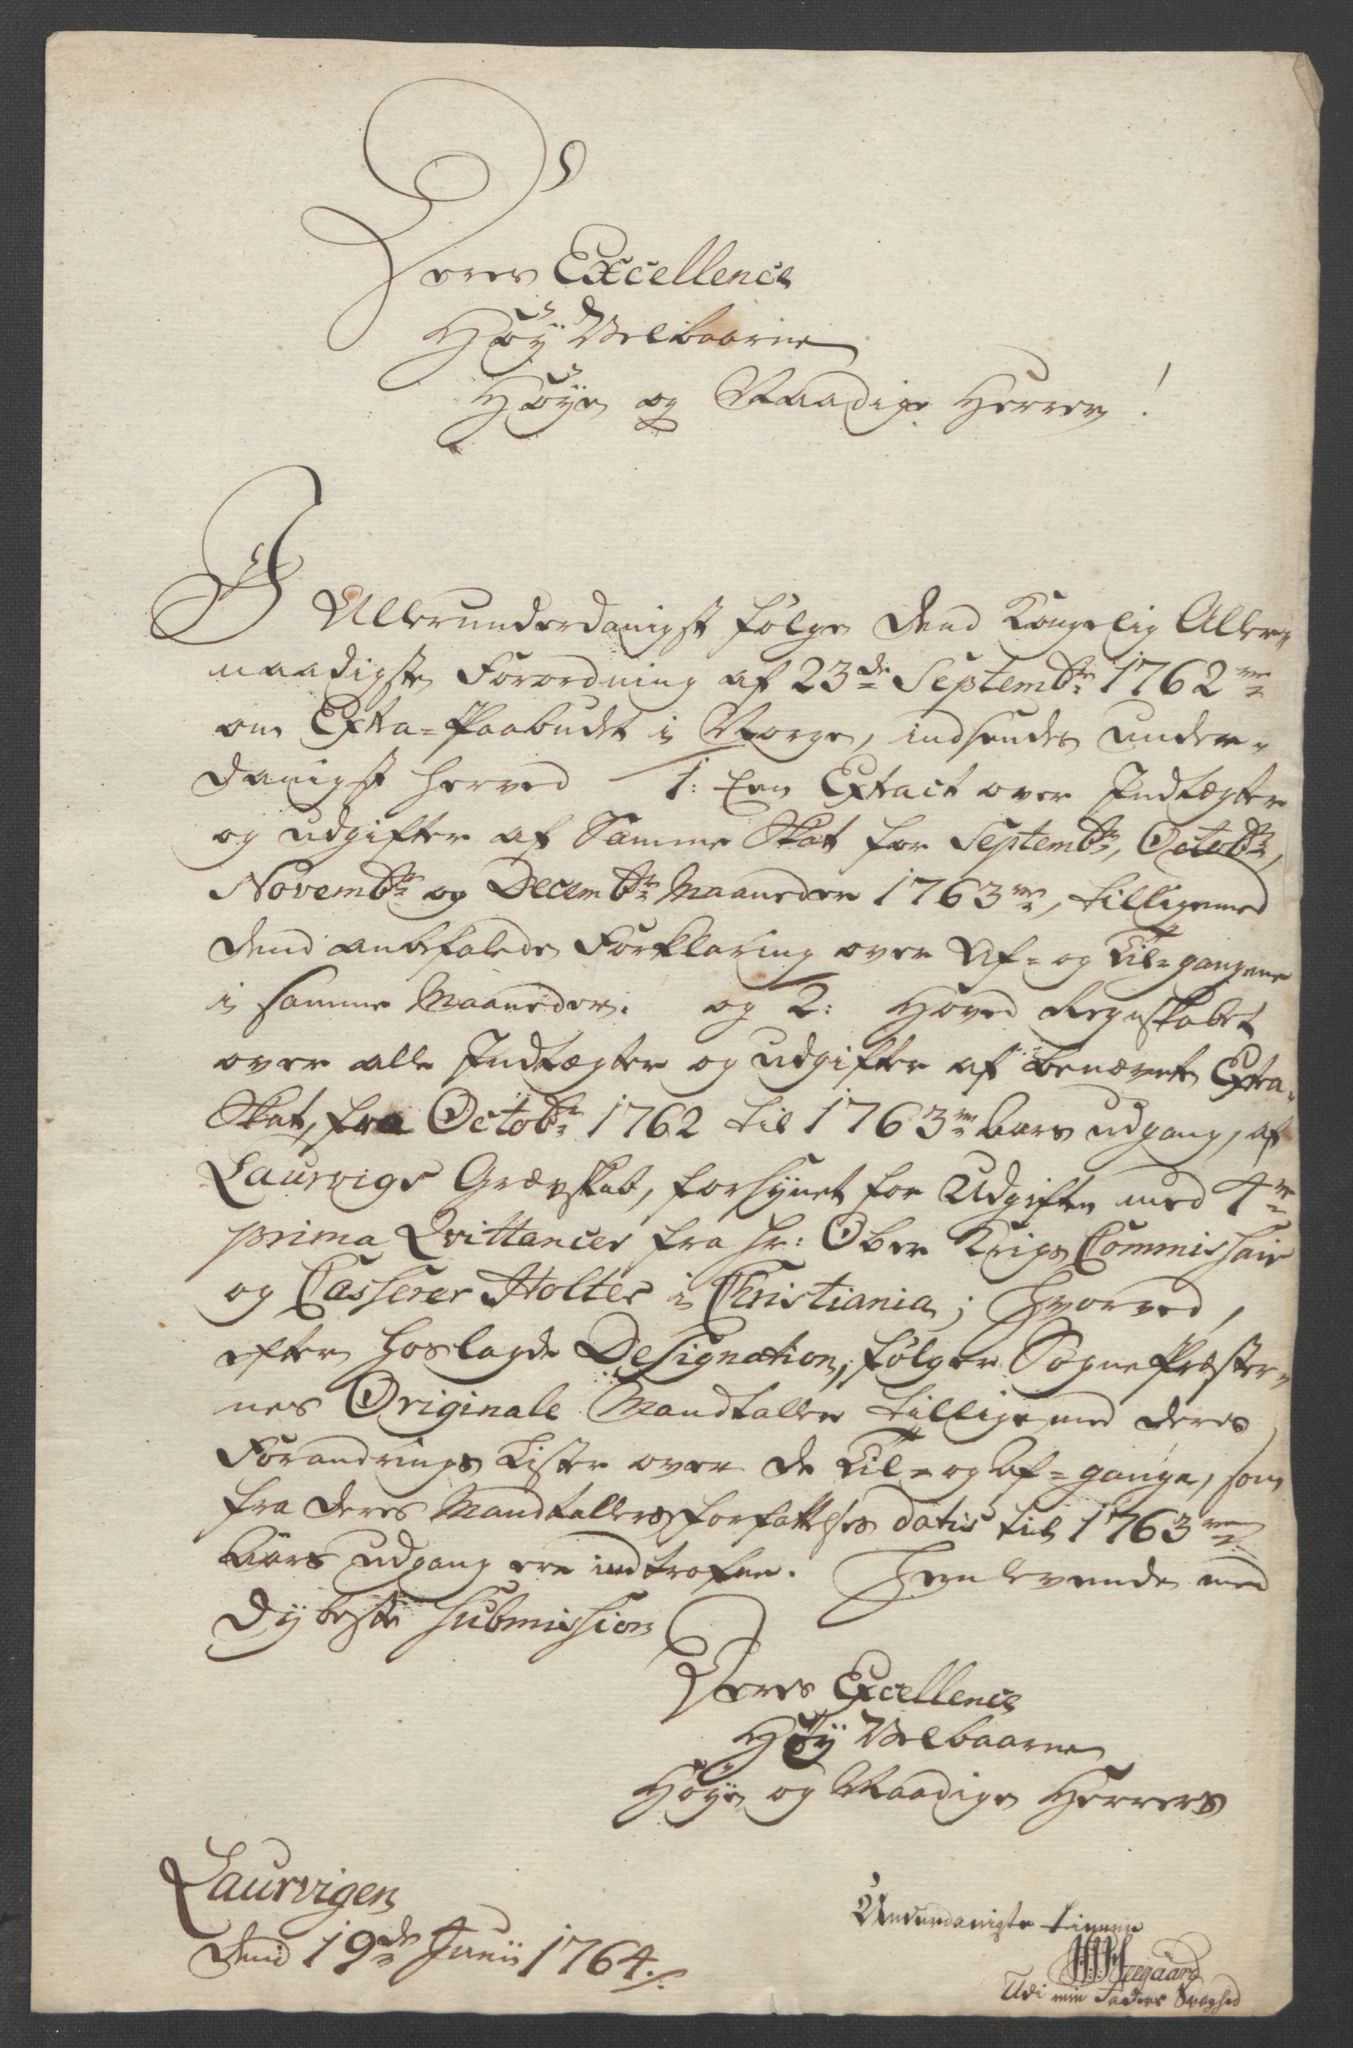 Deres Excellence
Høy Velbaarne
Høye og Naadige Herrer!
I Allerunderdanigst følge dend Kongelig Aller-
naadigste Forordning af 23de Septembr 1762 re
om Extra-Paabudet i Norge, indsendes under-
danigst herved 1: Een Extract over Indtægter
og udgifter af Samme Skat for Septembr, Octobr,
Novembr og Decembr Maaneder 1763 re, tilligemed
dend anbefalede Forklaring over Af- og Til-gangene
i samme Maaneder. og 2: Hoved Regnskabet
over alle Indtægter og udgifter af benævnte Extra-
Skat, fra Octobr 1762 til 1763 re Aars udgang, af
Laurvigs Grævskab, forsynet for Udgiften med 4re
prima Qvittancer fra Hr: Ober Krigs Commissair
og Casserer Holter i Christiania; hvorved,
efter hoslagde Designation, følger Sogne Præster-
nes Originale Mandtaller tilligemed deres
Forandrings Lister over de Til- og Af-gange, som
fra deres Mandtallers forfattelses datis til 1763 re
Aars udgang ere indtrofne. Henlevende med
dybeste submission
Deres Excellence
Høy Velbaarne
Høye og Naadige Herrers
Laurvigen
dend 19de Junii 1764.
Underdanigste tienere
Seegaard
Udi min Faders Svaghed